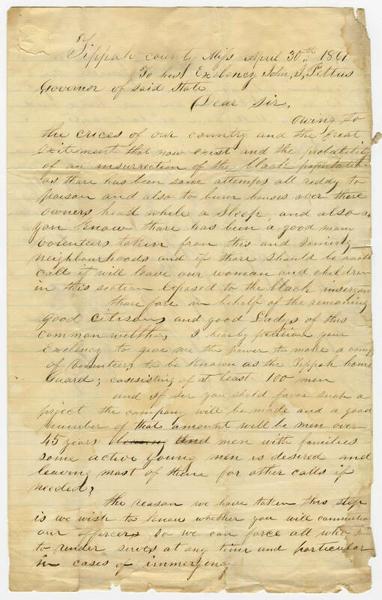 Tippah county Miss april 30th 1861
To his Exelency John, J, Pettus
Governor of said State
Dear Sir,
owing to
the crices of our country and the great
Exitement that now exist and the probability
of an insurrection of the black population
as there has been some attempts all reddy to
poason and also to burn houses over there
owners head while a sleep, and also as
you know there has been a good many
volenteers taken from this and
neighbourhoods and if there should be
call it will leave our woman and children
in this section exposed to the black
therefore in behalf of the remaining
good citizens and good Ladys of this
common welth, I hereby petition your
exelency to give me the power to make a
of volenteers to be known as the Tippah home
Guard; consisting of at least 100 men
and if sir you shold favor such a
project the company will be made and a good
number of that amount will be men over
45 years and men with families
some active young men is desired and
leaving most of them for other calls if
needed;
the reason we have taken this step
is we wish to know whether you will
our officers so we can force all who
to render at any time and particular
in cases of immergency